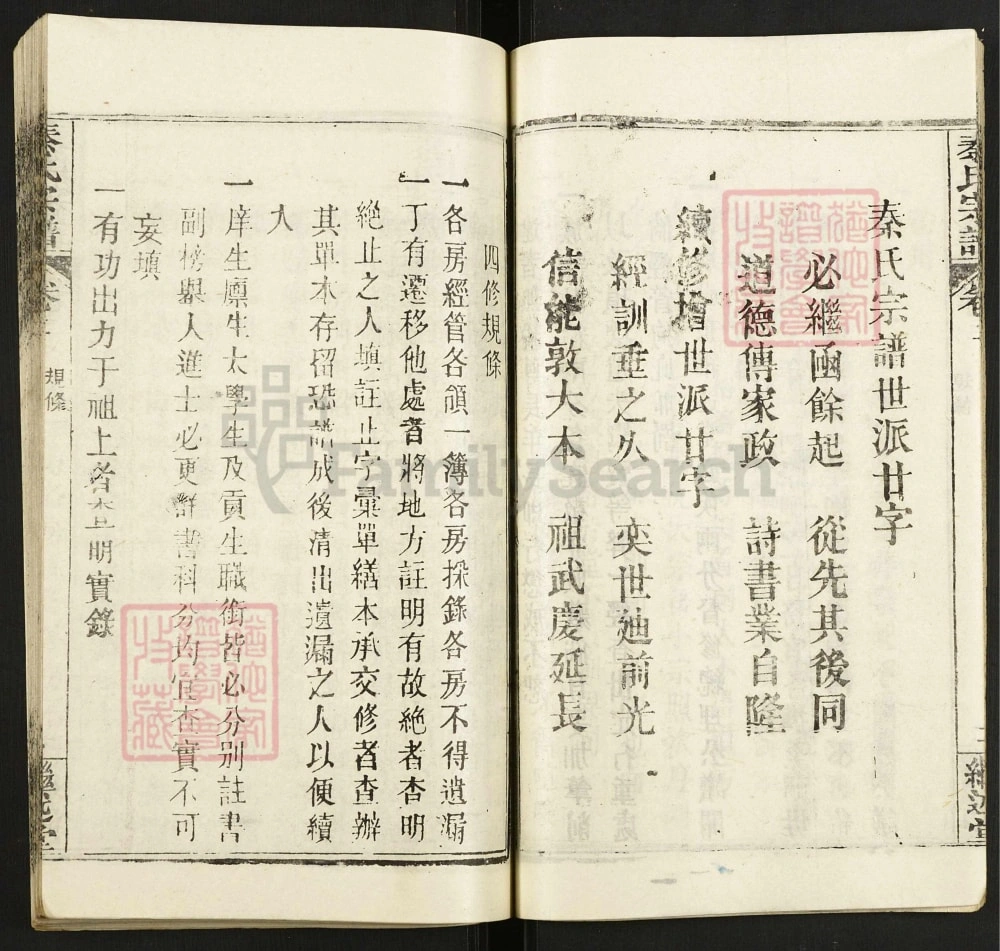 秦氏宗譜
秦氏宗譜世派廿字
必繼函餘起 從先其後同
道德傳家政 詩書業自隆
續修增世派廿字
經訓垂之久 奕世迪前光
信能敦大本 祖武慶延長
二
繼述堂
四修規條
一各房經管各領一簿各房採錄各房不得遺漏
一丁有遷移他處者將地方註明有故絶者杳明
絶止之人填註止字彙單繕本承交修者查辦
其單本存留恐譜成後清出遺漏之人以便續
入
一庠生廪生太學生及貢生職銜皆必分別註書
副榜舉人進士必更詳書科分均宜杳實不可
妄填
一有功出力于祖上者杳明實錄
秦氏宗譜
規條
繼述堂
FamilySearch